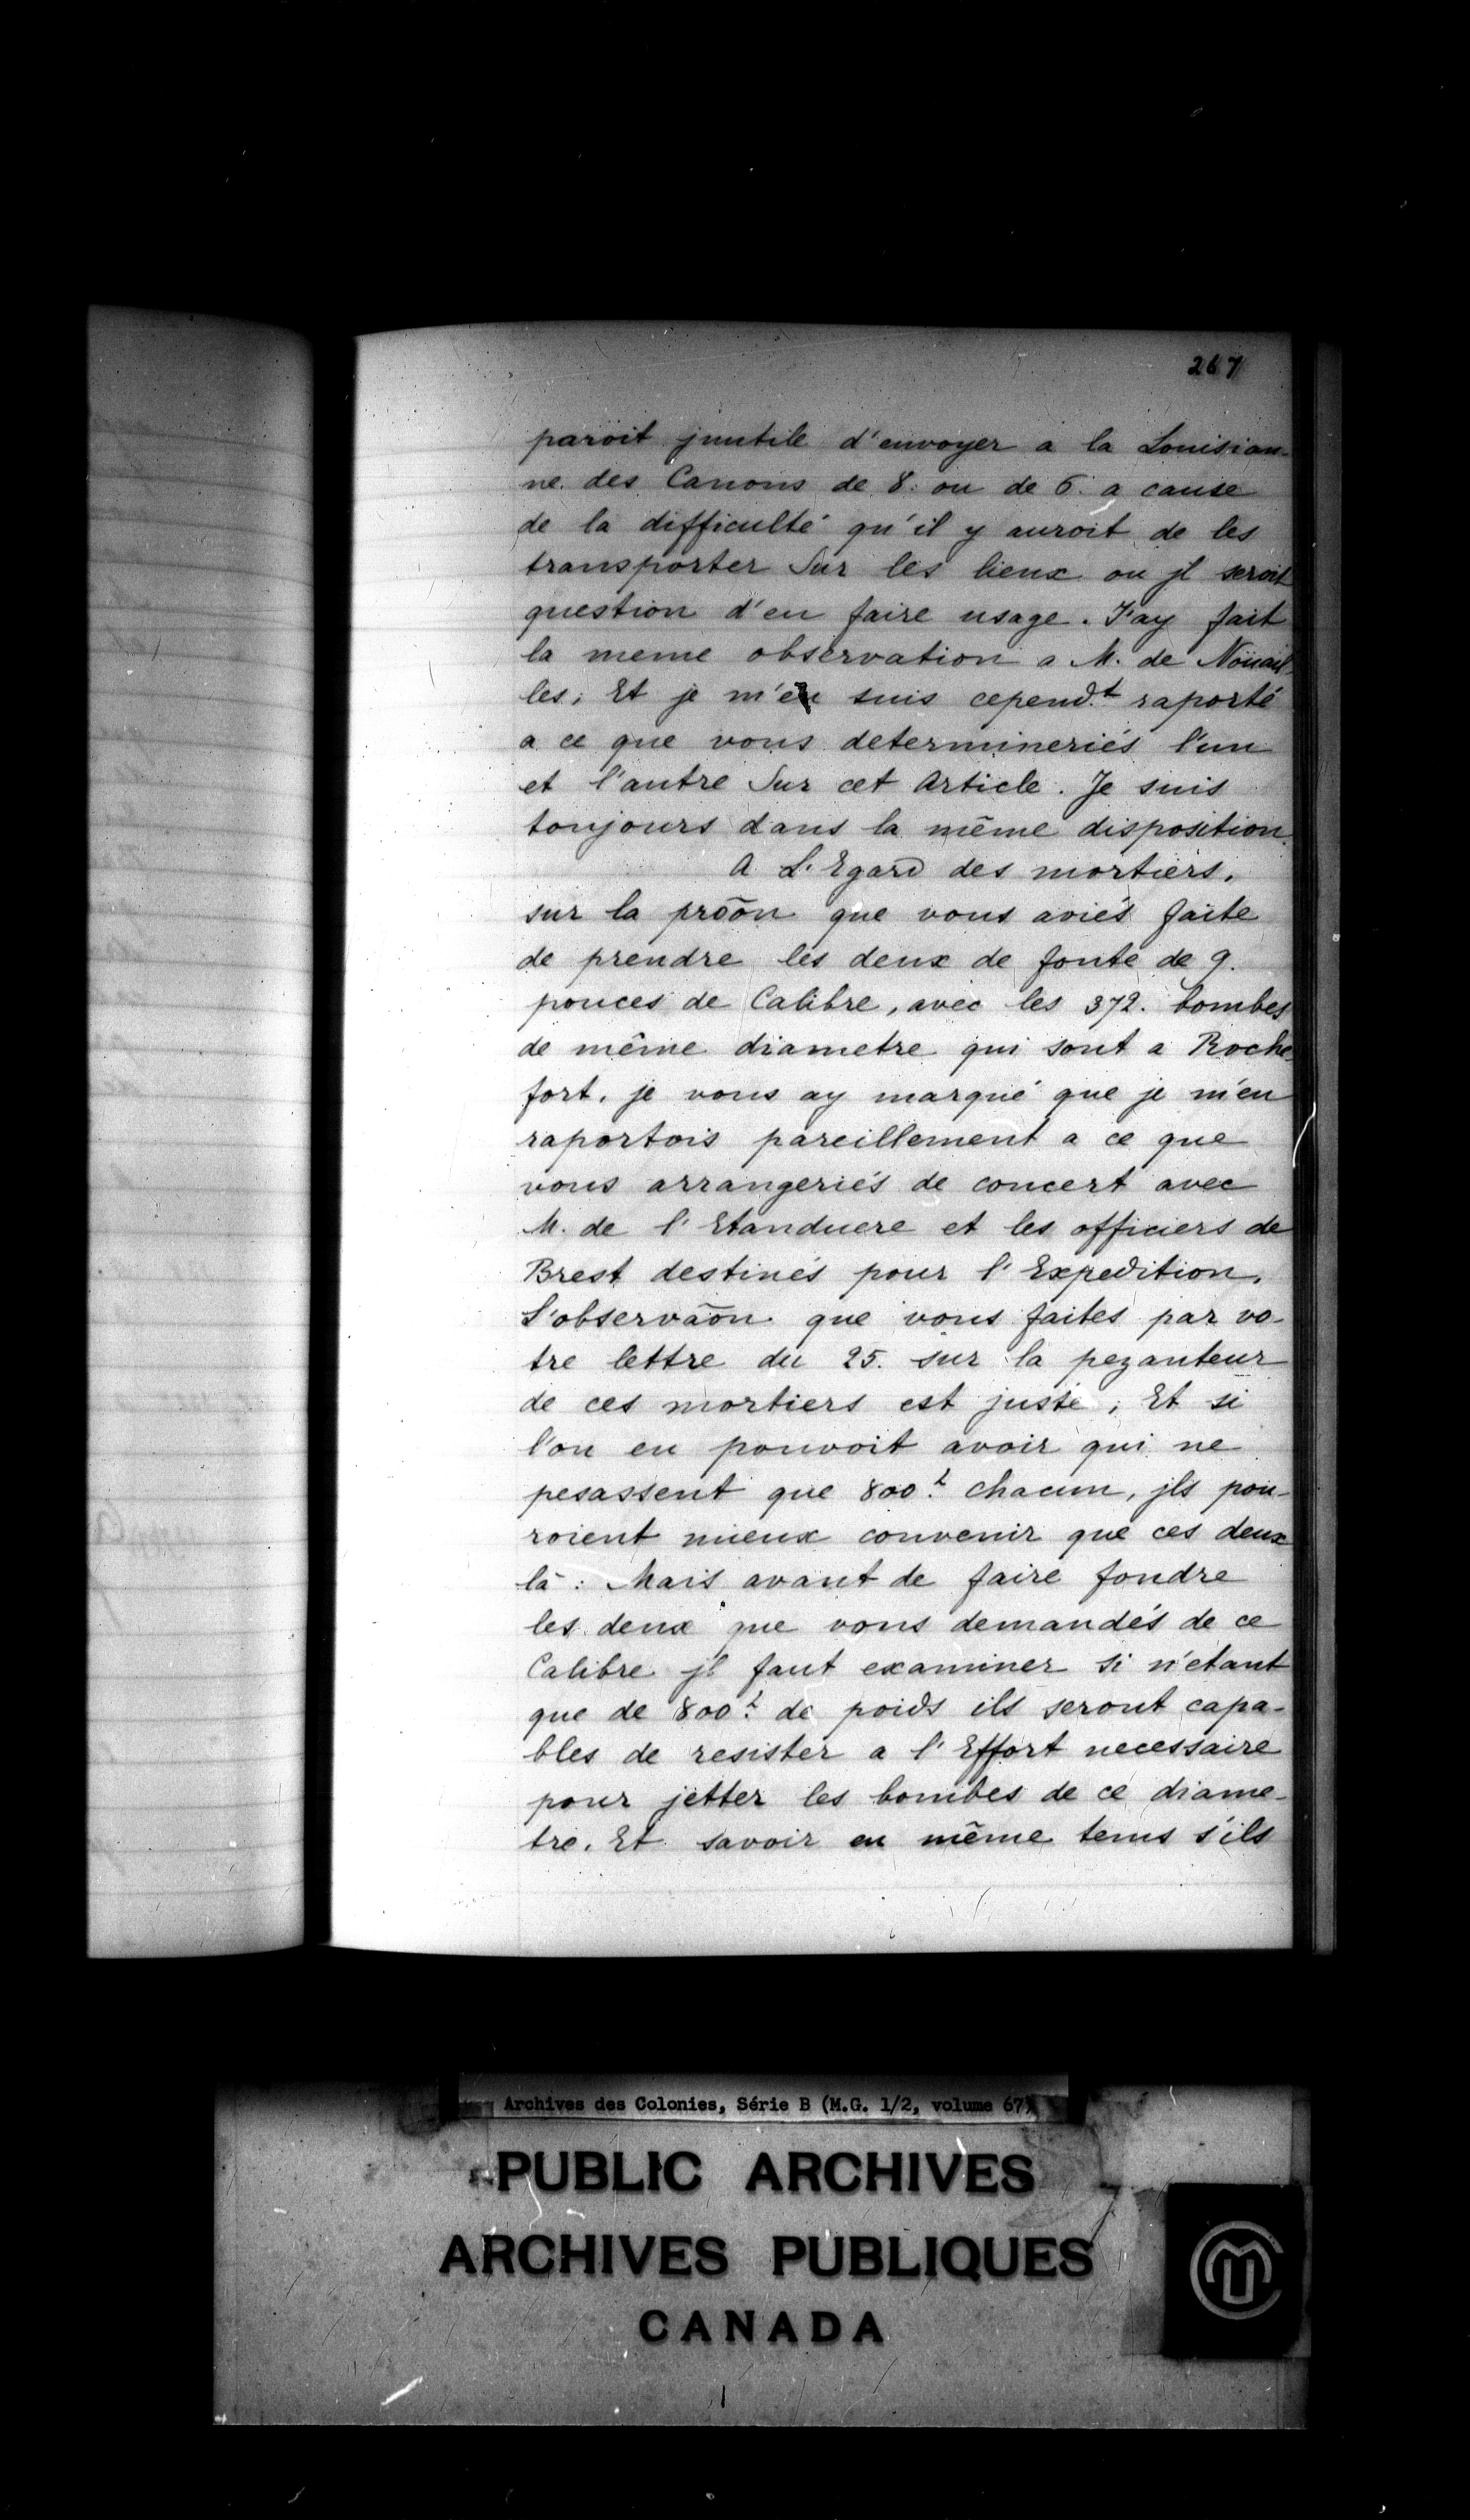 267
paroit jnutile d'envoyer a la Louisian-
ne des Canons de 8. ou de 6. a cause
de la difficulté qu'il y auroit de les
transporter Sur les lieux ou jl seroit
question d'en faire usage. J'ay fait
la meme observation a M. de Noüail-
les; Et je m'en suis cepend.t raporté
a ce que vous determineriés l'un
et l'autre Sur cet Article. Je suis
toujours dans la même disposition.
A L'Egard des mortiers,
sur la prõõn que vous aviés faite
de prendre les deux de fonte de 9.
pouces de Calibre, avec les 372. bombes
de même diametre qui sont a Roche-
fort, je vous ay marqué que je m'en
raportois pareillement a ce que
vous arrangeriés de concert avec
M. de l'Etanduere et les officiers de
Brest destinés pour l'Expedition.
L'observãon que vous faites par vo-
tre lettre du 25. sur la pezanteur
de ces mortiers est juste; Et si
l'on en pouvoit avoir qui ne
pesassent que 800.t chacun, jls pou-
roient mieux convenir que ces deux
là: Mais avant de faire fondre
les deux que vous demandés de ce
Calibre jl faut examiner si n'etant
que de 800.t de poids ils seront capa-
bles de resister a l'Effort necessaire
pour jetter les bombes de ce diame-
tre. Et savoir en même tems s'ils
Archives des Colonies, Série B (M.G. 1/2, volume 67)
PUBLIC ARCHIVES
ARCHIVES PUBLIQUES
CANADA